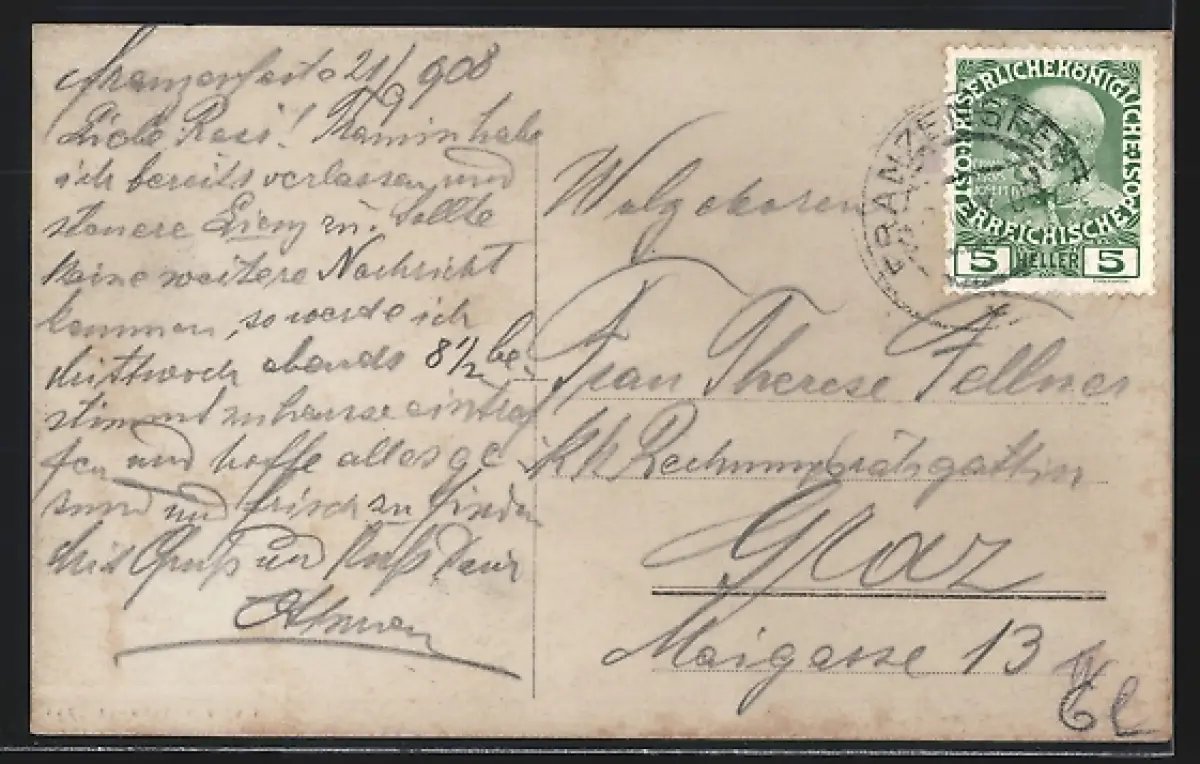 Franzensfeste 21/ 908
Liebe Resi! Tramin habe
ich bereits verlassen und
steuere Lienz zu. Sollte
keine weitere Nachricht
kommen, so werde ich
Mittwoch abends 8 1/2 be-
stimmt zuhause eintref
fen und hoffe alles ge
sund und frisch zu finden
Mit Gruß und Kuß Dein
Wolgeboren
Frau Therese Fellner
kk Rechnungsratsgattin
Graz
Maigasse 13
KAISERLICHEKÖNIGLICHE
ÖSTERREICHISCHE POST
5 HELLER 5
FRANZENSFESTE